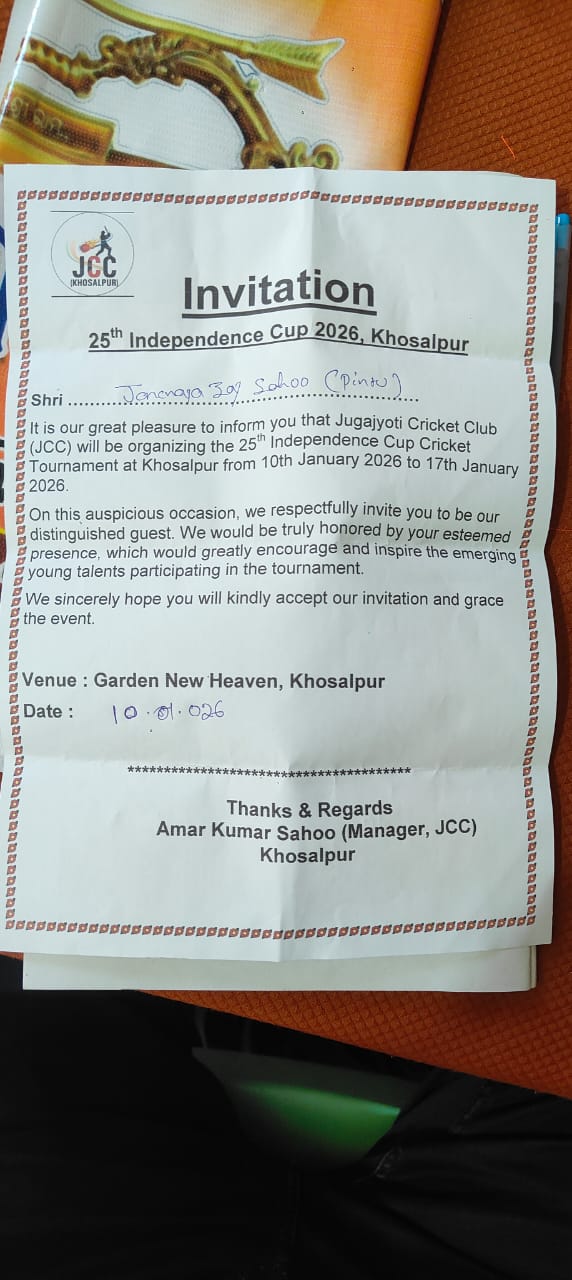 JCC
(KHOSALPUR)
Invitation
25th Independence Cup 2026, Khosalpur
Shri ........ Sahoo (Pintu) ........
It is our great pleasure to inform you that Jugajyoti Cricket Club
(JCC) will be organizing the 25th Independence Cup Cricket
Tournament at Khosalpur from 10th January 2026 to 17th January
2026.
On this auspicious occasion, we respectfully invite you to be our
distinguished guest. We would be truly honored by your esteemed
presence, which would greatly encourage and inspire the emerging
young talents participating in the tournament.
We sincerely hope you will kindly accept our invitation and grace
the event.
Venue : Garden New Heaven, Khosalpur
Date : 10.01.026
*****************************************
Thanks & Regards
Amar Kumar Sahoo (Manager, JCC)
Khosalpur